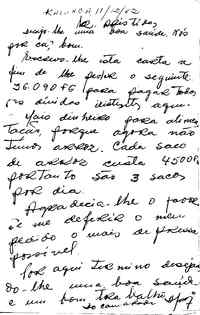 11/12/02
desejo-lhe uma boa saúde. Nós
por cá, bom.
Escrevo-lhe esta carta a
fim de lhe pedir o seguinte
36.090 FG para pagar todas
dívidas aqui.
Mais dinheiro para alimen
tação, porque agora não
temos arroz. Cada saco
de arroz custa 4500F
portanto são 3 sacos
por dia.
Agradecia-lhe o favor
e me deferir o meu
pedido o mais depressa
possível
Por aqui termino desejan
do-lhe uma boa saúde
e um bom trabalho